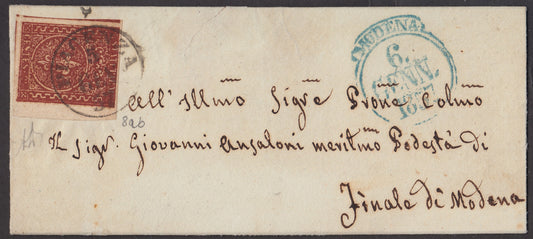 MODENA
6.
GENN.
1857
All' Illmo Sigre Prone Colmo
8ab
Il Sigr. Giovanni Ansaloni meritmo Podestà di
Finale di Modena